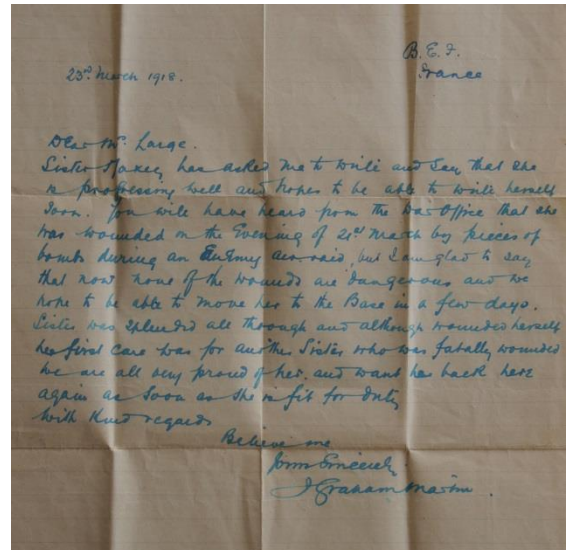 B.E.F.
France
23rd March 1918.
Dear Mr. Large.
Sister Maxey has asked me to write and say that she
is progressing well and hopes to be able to write herself
soon. You will have heard from the War Office that she
was wounded on the Evening of 21st March by pieces of
bomb during an Enemy air raid, but I am glad to say
that now none of the wounds are dangerous and we
hope to be able to move her to the Base in a few days.
Sister was splendid all through and although wounded herself
her first care was for another Sister who was fatally wounded
we are all very proud of her, and want her back here
again as soon as she is fit for duty
With Kind regards
Believe me
Yours Sincerely
J Graham Martin